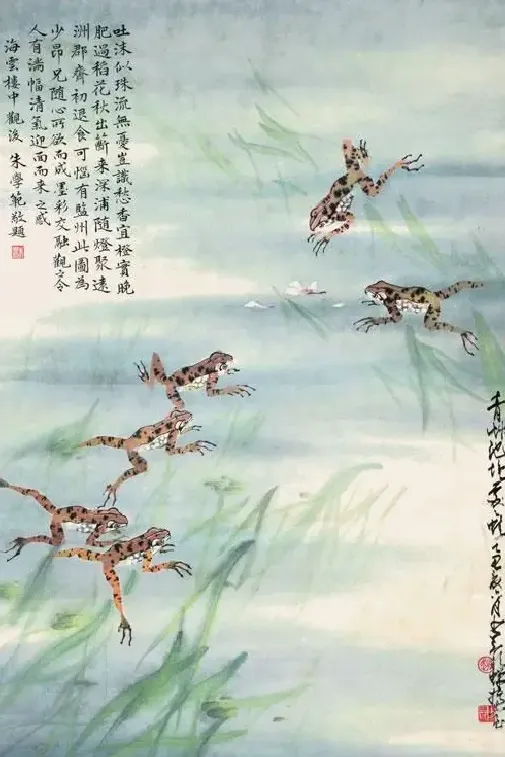 吐沫似珠流無憂豈識愁香宜橙實晚
肥過稻花秋出籪来深浦随燈聚遠
洲郡齋初退食可惱有監州此圖為
少昂兄随心所欲而成墨彩交融觀之令
人有滿幅清氣迎面而来之感
海雲樓中觀後 朱學範敬題
青草池塘處處蛙